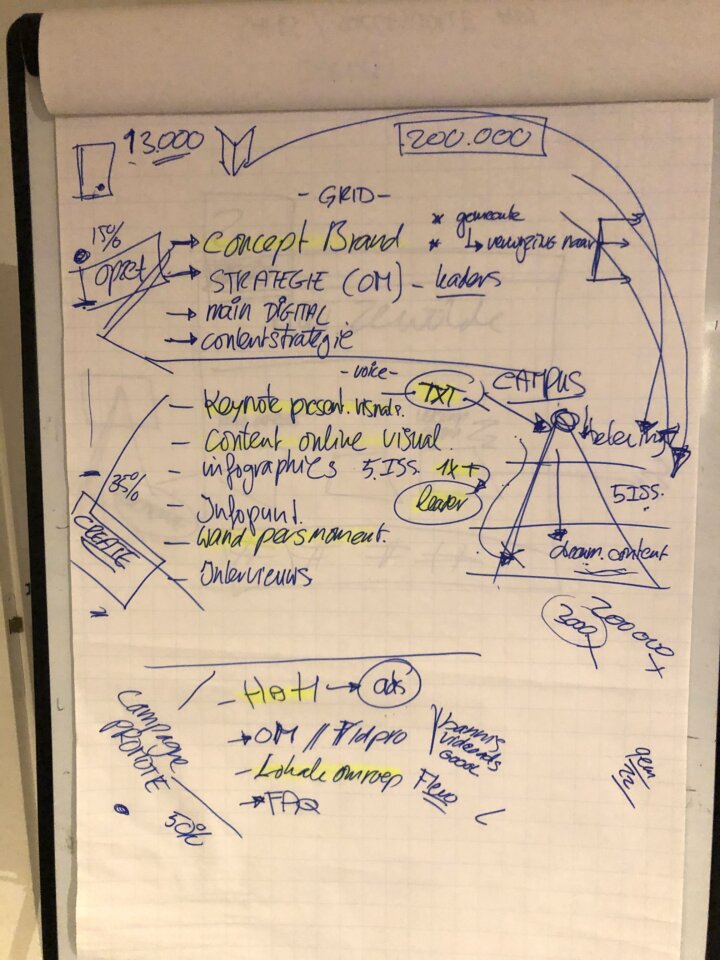 13.000
200.000
- GRID -
15%
opzet
→ Concept Brand
* gemeente
* ↳ verwijzing naar
→ STRATEGIE (OM) - kaders
→ main DIGITAL
→ contentstrategie
- voice -
TXT
CAMPUS
- Keynote present. visuals.
- Content online visual.
beleving
- infographics 5.ISS. 1x+
5 ISS.
35%
- Infopunt.
CREATE
- wand persmoment.
content
- Interviews
3000
200000
- HAH → ads
Campagne
PROMOTE
→ OM //
- Lokale omroep Flevo
→ FAQ
50%
gem